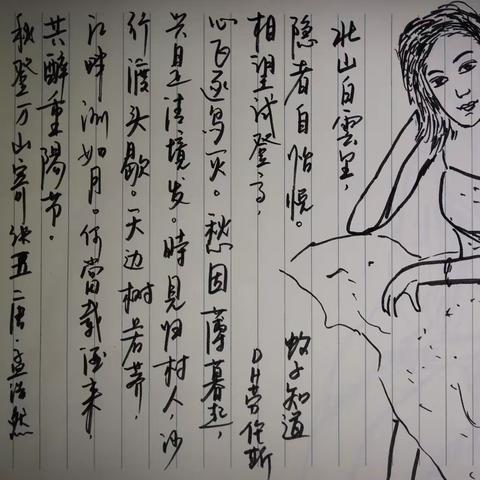 北山白雲里，
隐者自怡悦。
相望试登高，
心飞逐鸟灭。愁因薄暮起，
兴是清境发。時見归村人，沙
行渡头歇。天边树若荠，
江畔洲如月。何當载酒来，
共醉重陽节。
秋登万山寄张五 唐·孟浩然
蚊子知道
DH劳伦斯